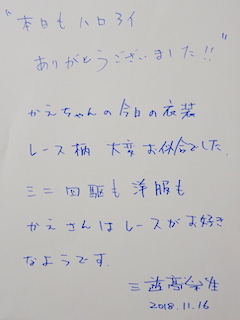 "本日もハロアイ
ありがとうございました!!"
かえちゃんの今日の衣装
レース柄 大変お似合でした.
ミニ四駆も洋服も
かえさんはレースがお好き
なようです.
2018.11.16